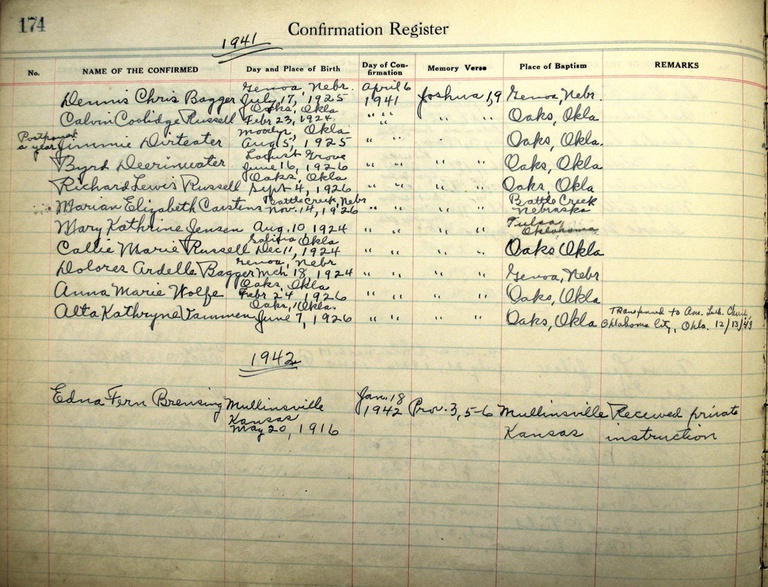 174
Confirmation Register
1941
No. NAME OF THE CONFIRMED Day and Place of Birth Day of Con- firmation Memory Verse Place of Baptism REMARKS
Genoa, Nebr. April 6
Dennis Chris Bagger July 17, 1925 1941 Joshua 1,9 Genoa, Nebr.
Oaks, Okla
Calvin Coolidge Russell Febr 23, 1924 " " " " Oaks, Okla
Postponed Moodys, Okla
a year Jimmie Dirteater Aug 5, 1925 " " " Oaks, Okla.
Locust Grove
Byrd Deerinwater June 16, 1926 " " " " Oaks, Okla
Oaks, Okla
Richard Lewis Russell Sept 4, 1926 " " " " Oaks, Okla
Battle Creek, Nebr Battle Creek
Marian Elizabeth Carstens Nov. 14, 1926 " " " " Nebraska
Mary Kathrine Jensen Aug. 10, 1924 " " " " Tulsa, Oklahoma
Salina, Okla
Callie Marie Russell Dec 11, 1924 " " " " Oaks Okla
Genoa, Nebr
Dolores Ardelle Bagger Mch 18, 1924 " " " " Genoa, Nebr
Oaks, Okla
Anna Marie Wolfe Febr 24, 1926 " " " " Oaks, Okla
Oaks, Okla. Transferred to Am. Luth. Church,
Alta Kathryne Tammen June 7, 1926 " " " " Oaks, Okla Oklahoma City, Okla. 12/13/43
1942
Jan. 18
Edna Fern Brensing Mullinsville 1942 Prov. 3, 5-6 Mullinsville Received private
Kansas
May 20, 1916 Kansas instruction